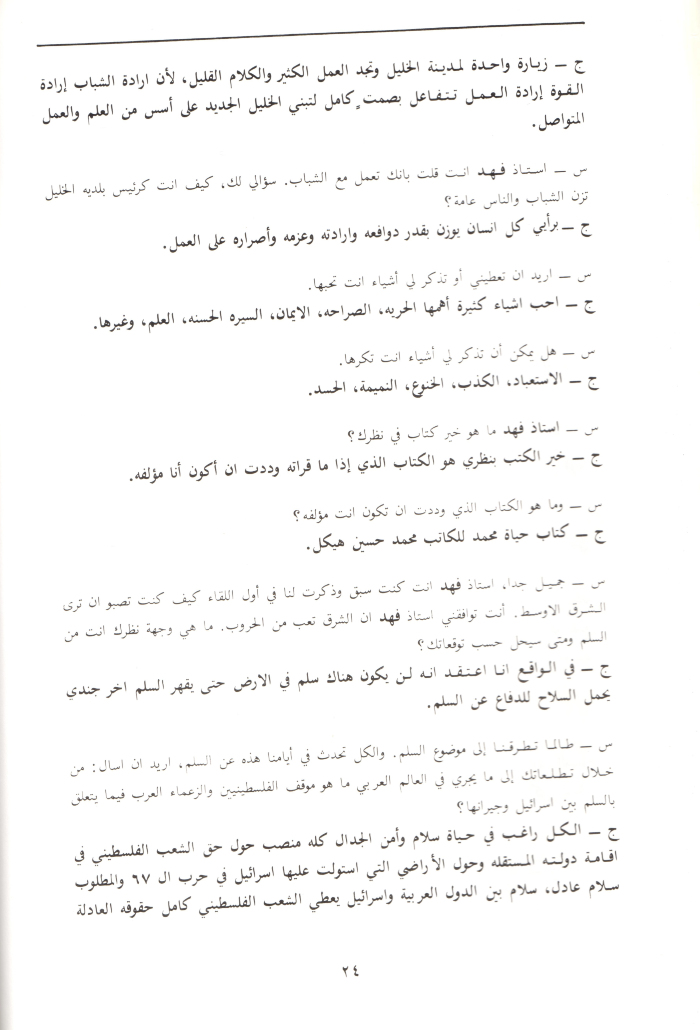 ج — زيارة واحدة لمدينة الخليل وتجد العمل الكثير والكلام القليل، لأن ارادة الشباب إرادة
القوة إرادة العمل تتفاعل بصمت كامل لتبني الخليل الجديد على أسس من العلم والعمل
المتواصل.
س — استاذ فهد انت قلت بانك تعمل مع الشباب. سؤالي لك، كيف انت كرئيس بلديه الخليل
تزن الشباب والناس عامة؟
ج — برأيي كل انسان يوزن بقدر دوافعه وارادته وعزمه وأصراره على العمل.
س — اريد ان تعطيني أو تذكر لي أشياء انت تحبها.
ج — احب اشياء كثيرة أهمها الحريه، الصراحه، الايمان، السيره الحسنه، العلم، وغيرها.
س — هل يمكن أن تذكر لي أشياء انت تكرها.
ج — الاستعباد، الكذب، الخنوع، النميمة، الحسد.
س — استاذ فهد ما هو خير كتاب في نظرك؟
ج — خير الكتب بنظري هو الكتاب الذي إذا ما قراته وددت ان أكون أنا مؤلفه.
س — وما هو الكتاب الذي وددت ان تكون انت مؤلفه؟
ج — كتاب حياة محمد للكاتب محمد حسين هيكل.
س — جميل جدا، استاذ فهد انت كنت سبق وذكرت لنا في أول اللقاء كيف كنت تصبو ان ترى
الشرق الاوسط. أنت توافقني استاذ فهد ان الشرق تعب من الحروب. ما هي وجهة نظرك انت من
السلم ومتى سيحل حسب توقعاتك؟
ج — في الواقع انا اعتقد انه لن يكون هناك سلم في الارض حتى يقهر السلم اخر جندي
يحمل السلاح للدفاع عن السلم.
س — طالما تطرقنا إلى موضوع السلم. والكل تحدث في أيامنا هذه عن السلم، اريد ان اسال: من
خلال تطلعاتك إلى ما يجري في العالم العربي ما هو موقف الفلسطينيين والزعماء العرب فيما يتعلق
بالسلم بين اسرائيل وجيرانها؟
ج — الكل راغب في حياة سلام وأمن الجدال كله منصب حول حق الشعب الفلسطيني في
اقامة دولته المستقله وحول الأراضي التي استولت عليها اسرائيل في حرب ال ٦٧ والمطلوب
سلام عادل، سلام بين الدول العربية واسرائيل يعطي الشعب الفلسطيني كامل حقوقه العادلة
٢٤